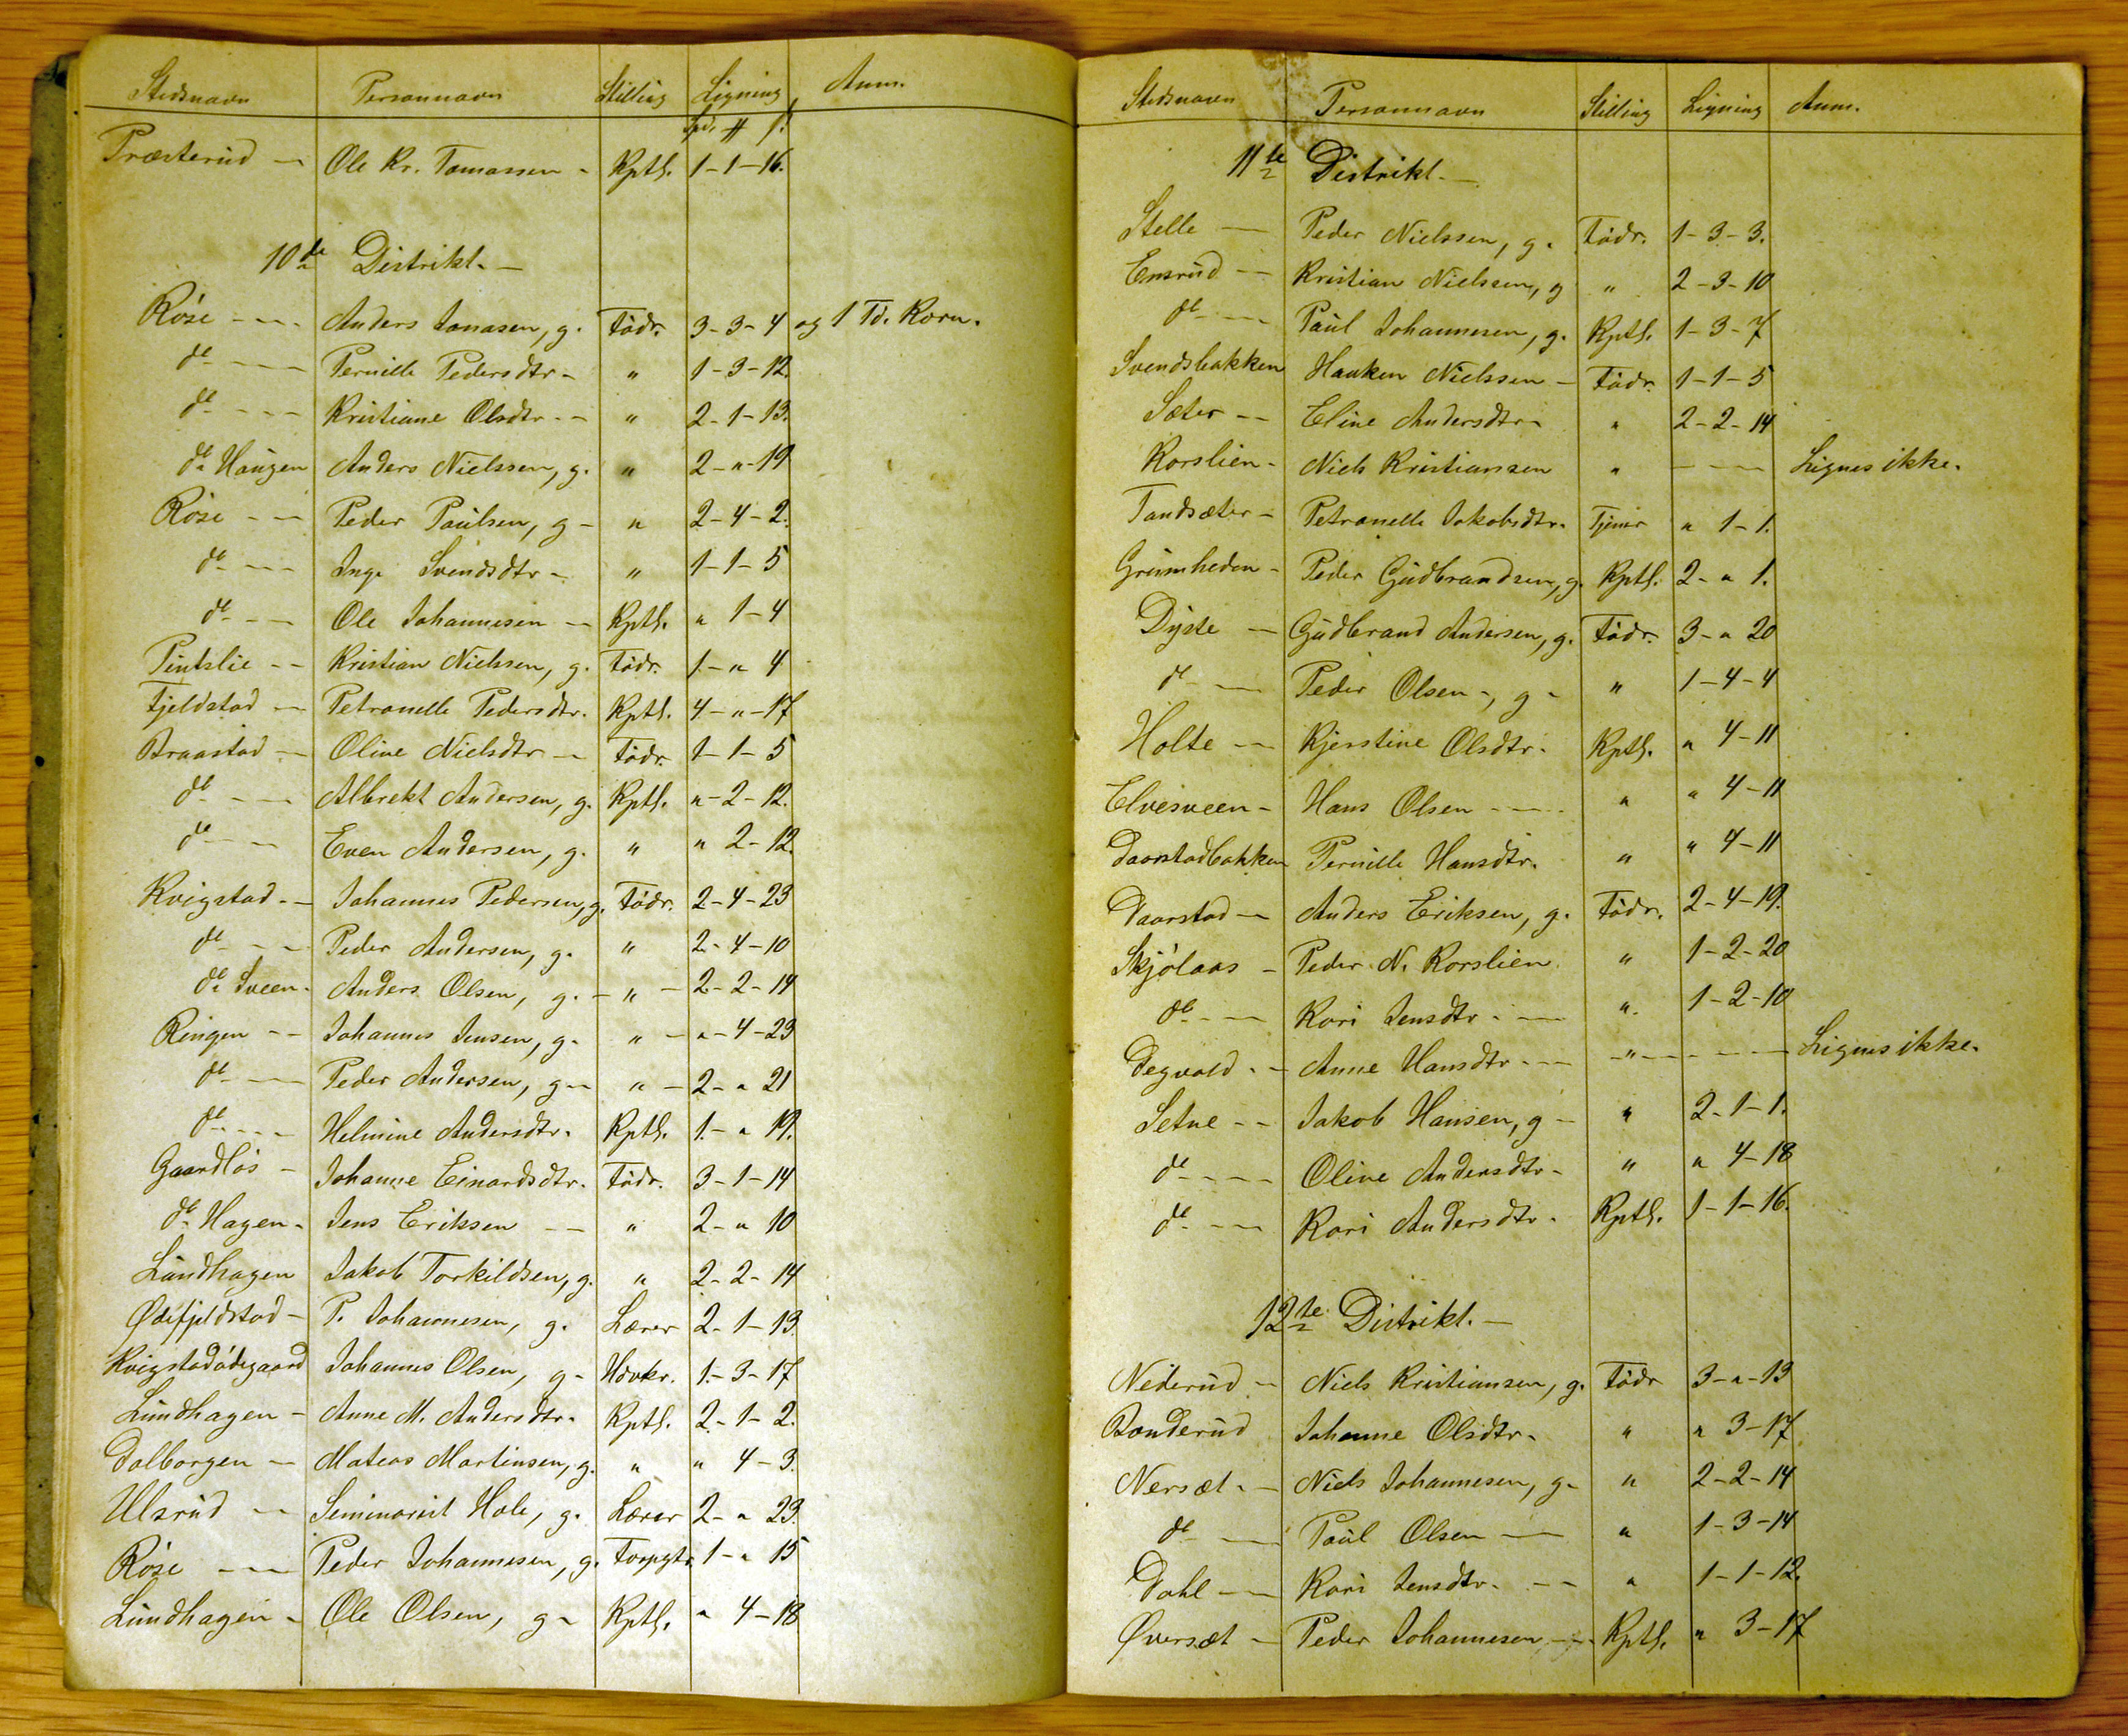 Stedsnavn Personnavn Stilling Ligning Anm.
Spd. # ß
Præsterud — Ole Kr. Tomassen - Kptl. 1-1-16.
10de Distrikt. —
Röse --- Anders Jonasen, g. Födr. 3-3-4 og 1 Td. Korn.
do --- Pernille Pedersdtr - " 1-3-12.
do --- Kristiane Olsdtr -- " 2-1-13.
do Haugen Anders Nielssen, g. " 2-"-19
Röse -- Peder Paulsen, g - " 2-4-2.
do --- Inge Svendsdtr - " 1-1-5
do --- Ole Johannesen -- Kptl. " 1-4
Pintslie -- Kristian Nielssen, g. Födr. 1-" 4
Fjeldstad — Petronelle Pedersdtr. Kptl. 4-"-17
Braastad — Oline Nielsdtr — Födr. 1-1-5
do --- Albrekt Andersen, g. Kptl. "-2-12.
do --- Even Andersen, g. " " 2-12.
Kvigstad -- Johannes Pedersen, g. Födr. 2-4-23
do --- Peder Andersen, g. " 2-4-10
do Sveen - Anders Olsen, g. - " - 2-2-14
Ringen -- Johannes Jensen, g. " - "-4-23
do --- Peder Andersen, g -- " - 2-" 21
do --- Helmine Andersdtr. Kptl. 1-" 19.
Gaardlös - Johanne Einardsdtr. Födr. 3-1-14
do Hagen - Jens Eriksen -- " 2-" 10
Lundhagen Jakob Torkildsen, g. " 2-2-14
Ødefjeldstad - P. Johannesen, g. Lærer 2-1-13
Kvigstadödegaard Johannes Olsen, g - Hdvkr. 1-3-17
Lundhagen - Anne M. Andersdtr. Kptl. 2-1-2.
Dalborgen — Mateas Martinsen, g. " " 4-3.
Ulsrud — Seminarist Hole, g. Lærer 2-" 23.
Röse --- Peder Johannesen, g. Forpgtr. 1-" 15
Lundhagen - Ole Olsen, g - Kptl. " 4-18
Stedsnavn Personnavn Stilling Ligning Anm.
11te Distrikt. —
Stelle — Peder Nielssen, g. Födr. 1-3-3.
Ensrud -- Kristian Nielssen, g " 2-3-10
do --- Paul Johannesen, g. Kptl. 1-3-7
Svendsbakken Hauken Nielssen - Födr. 1-1-5
Sæter -- Eline Andersdtr - " 2-2-14
Korslien - Niels Kristianssen " --- Lignes ikke.
Tandsæter - Petronelle Jakobsdtr. Tjener " 1-1.
Grimheden - Peder Gudbrandsen, g. Kptl. 2-" 1.
Dyste — Gudbrand Andersen, g. Födr. 3-" 20
do --- Peder Olsen -, g - " 1-4-4
Holte — Kjerstine Olsdtr. Kptl. " 4-11
Elvesveen - Hans Olsen --- " " 4-11
Daarstadbakken Pernille Hansdtr. " " 4-11
Daarstad — Anders Eriksen, g. Födr. 2-4-19.
Skjölaas - Peder N. Korslien " 1-2-20
do --- Kari Jensdtr - — " 1-2-10
Degvold -- Anne Hansdtr --- " --- Lignes ikke.
Setne -- Jakob Hansen, g - " 2-1-1.
do --- Oline Andersdtr - " " 4-18
do --- Kari Andersdtr - Kptl. 1-1-16.
12te Distrikt. —
Nederud — Niels Kristiansen, g. Födr 3-"-13
Bonderud Johanne Olsdtr. " " 3-17
Nersæt - — Niels Johannesen, g - " 2-2-14
do --- Paul Olsen — " 1-3-14
Dahl — Kari Jensdtr. -- " 1-1-12.
Øversæt - Peder Johannesen -- Kptl. " 3-17